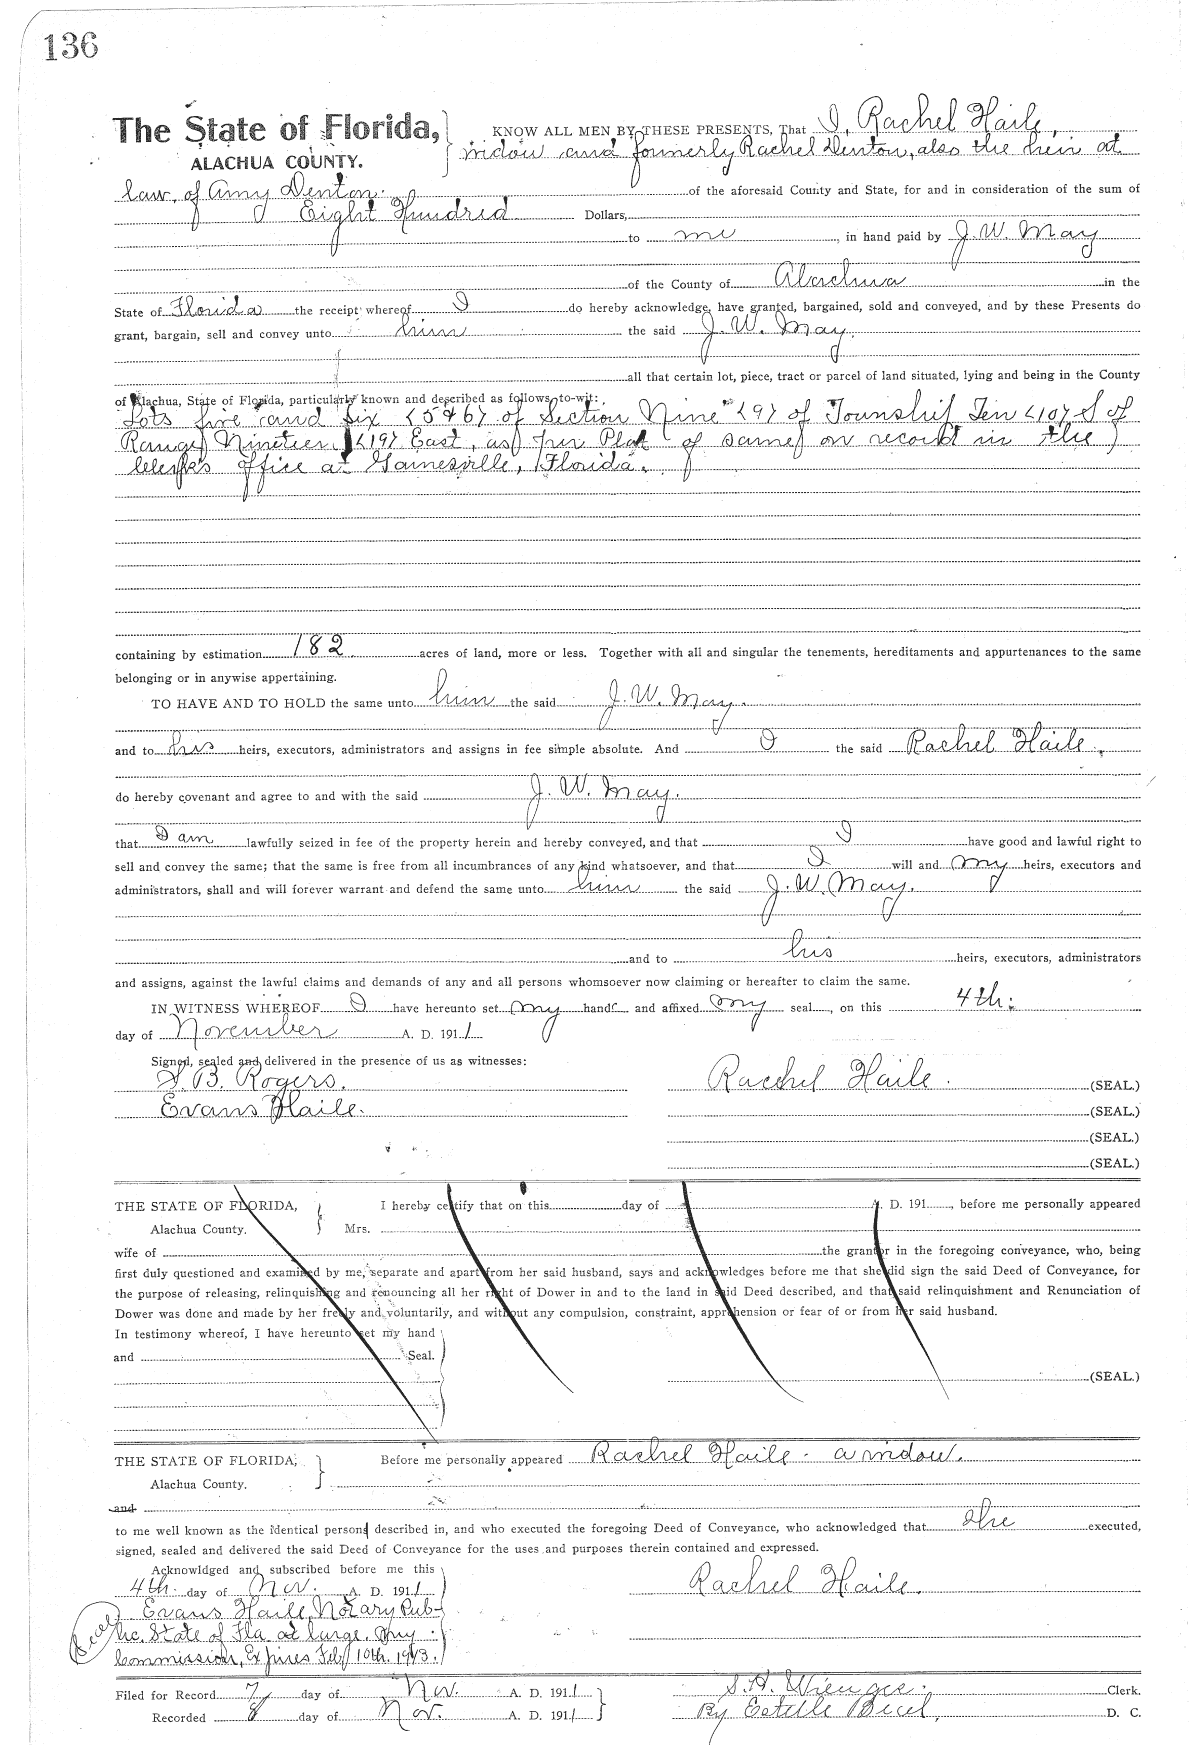 136
The State of Florida, KNOW ALL MEN BY THESE PRESENTS, That I, Rachel Haile,
ALACHUA COUNTY. widow and formerly Rachel Denton, also the heir at
law, of Amy Denton. of the aforesaid County and State, for and in consideration of the sum of
Eight Hundred Dollars,
to me, in hand paid by J. W. May
of the County of Alachua in the
State of Florida the receipt whereof I do hereby acknowledge, have granted, bargained, sold and conveyed, and by these Presents do
grant, bargain, sell and convey unto him the said J. W. May.
all that certain lot, piece, tract or parcel of land situated, lying and being in the County
of Alachua, State of Florida, particularly known and described as follows, to-wit:
Lots five and Six (5 & 6) of Section Nine (9) of Township Ten (10) S of
Range Nineteen (19) East, as per Plat of same on record in the
Clerks office at Gainesville, Florida.
containing by estimation 182 acres of land, more or less. Together with all and singular the tenements, hereditaments and appurtenances to the same
belonging or in anywise appertaining.
TO HAVE AND TO HOLD the same unto him the said J. W. May.
and to his heirs, executors, administrators and assigns in fee simple absolute. And I the said Rachel Haile,
do hereby covenant and agree to and with the said J. W. May.
that I am lawfully seized in fee of the property herein and hereby conveyed, and that I have good and lawful right to
sell and convey the same; that the same is free from all incumbrances of any kind whatsoever, and that I will and my heirs, executors and
administrators, shall and will forever warrant and defend the same unto him the said J. W. May.
and to his heirs, executors, administrators
and assigns, against the lawful claims and demands of any and all persons whomsoever now claiming or hereafter to claim the same.
IN WITNESS WHEREOF I have hereunto set my hand and affixed my seal, on this 4th.
day of November A. D. 1911
Signed, sealed and delivered in the presence of us as witnesses:
B. Rogers. Rachel Haile. (SEAL.)
Evans Haile. (SEAL.)
(SEAL.)
(SEAL.)
THE STATE OF FLORIDA, I hereby certify that on this day of A. D. 191, before me personally appeared
Alachua County. Mrs.
wife of the grantor in the foregoing conveyance, who, being
first duly questioned and examined by me, separate and apart from her said husband, says and acknowledges before me that she did sign the said Deed of Conveyance, for
the purpose of releasing, relinquishing and renouncing all her right of Dower in and to the land in said Deed described, and that said relinquishment and Renunciation of
Dower was done and made by her freely and voluntarily, and without any compulsion, constraint, apprehension or fear of or from her said husband.
In testimony whereof, I have hereunto set my hand
and Seal.
(SEAL.)
THE STATE OF FLORIDA, Before me personally appeared Rachel Haile. a widow.
Alachua County.
and
to me well known as the identical person described in, and who executed the foregoing Deed of Conveyance, who acknowledged that she executed,
signed, sealed and delivered the said Deed of Conveyance for the uses and purposes therein contained and expressed.
Acknowldged and subscribed before me this
4th. day of Nov. A. D. 1911 Rachel Haile.
Evans Haile, Notary Pub-
(Seal) lic. State of Fla. at large. My
Commission, Expires Feb 10th. 1913.
Filed for Record 7 day of Nov. A. D. 1911 S. H. Wienges. Clerk.
Recorded 8 day of Nov. A. D. 1911 By Estelle D. C.